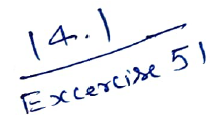 14.1
Excercise 51